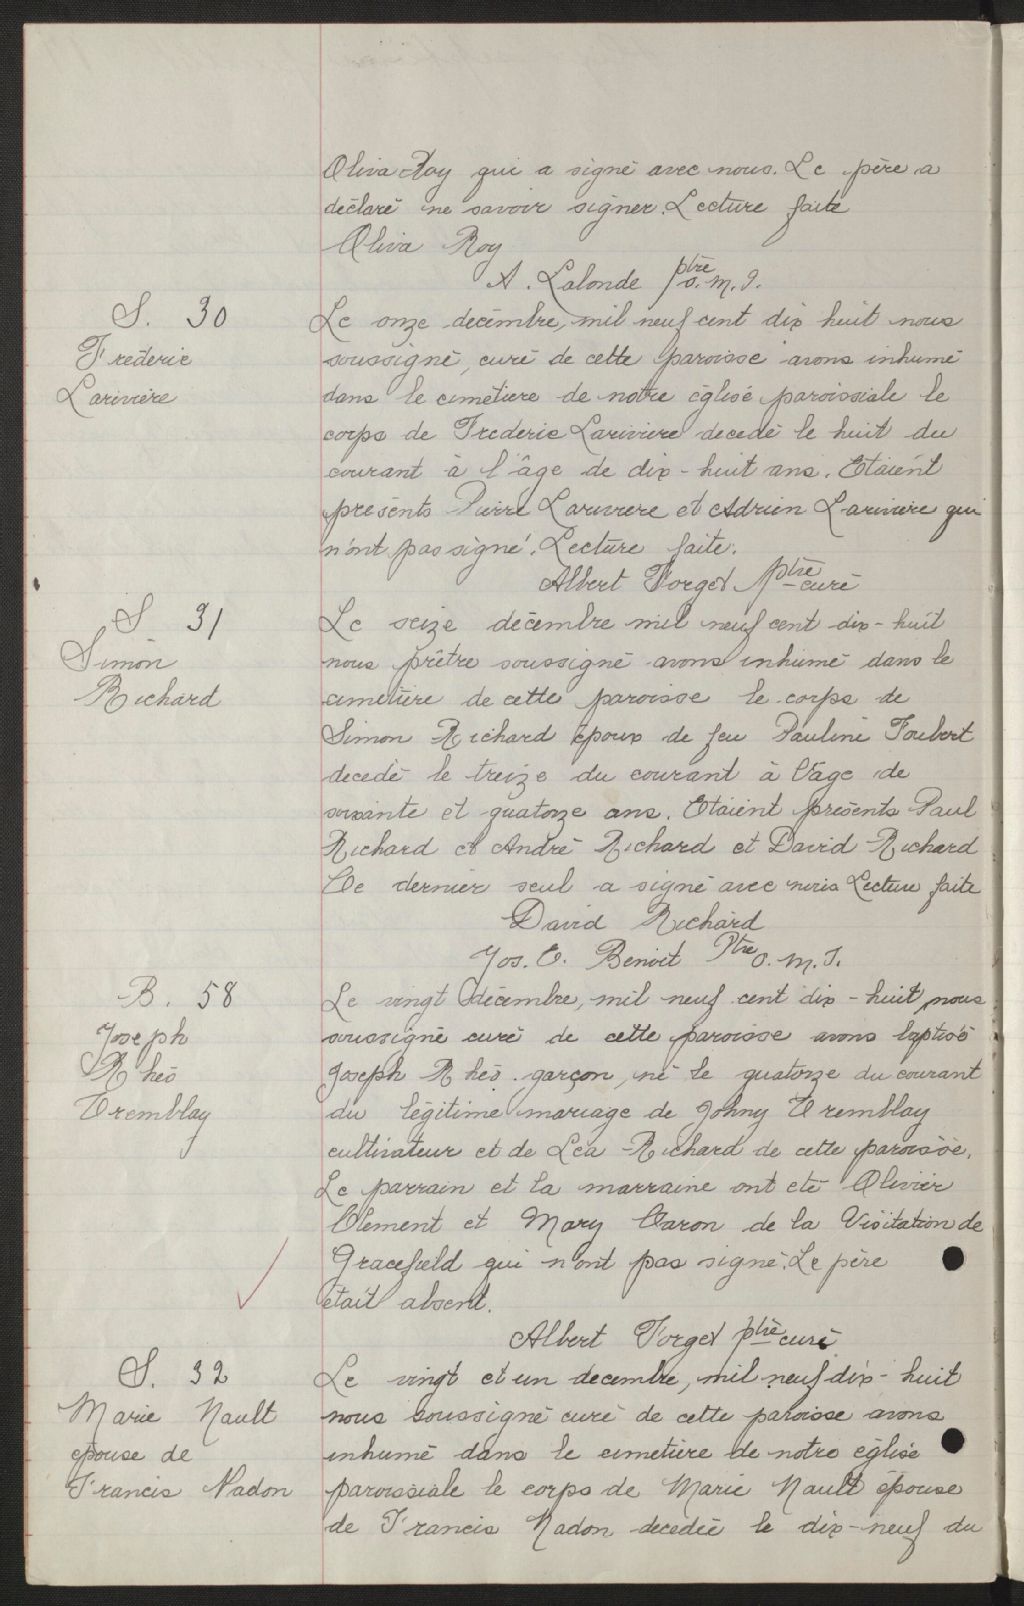 Oliva Roy qui a signé avec nous. Le père a
déclaré ne savoir signer. Lecture faite
Oliva Roy
A. Lalonde ptre o.m.I.
S. 30
Frederic
Larivière
Le onze décembre, mil neuf cent dix huit nous
soussigné, curé de cette paroisse avons inhumé
dans le cimetiere de notre église paroissiale le
corps de Frederic Lariviere decedé le huit du
courant à l'âge de dix-huit ans. Etaient
présents Pierre Lariviere et Adrien Lariviere qui
n'ont pas signé. Lecture faite.
Albert Forget ptre curé
S 31
Simon
Richard
Le seize décembre mil neuf cent dix-huit
nous prêtre soussigné avons inhumé dans le
cimetière de cette paroisse le corps de
Simon Richard époux de feu Pauline Joubert
decedé le treize du courant à l'âge de
soixante et quatorze ans. Etaient présents Paul
Richard et André Richard et David Richard
Ce dernier seul a signé avec nous Lecture faite
David Richard
Jos. E. Benoit Ptre O.M.I.
B. 58
Joseph
Rhéo
Tremblay
Le vingt décembre, mil neuf cent dix-huit nous
soussigné curé de cette paroisse avons baptisé
Joseph Rhéo garçon, né le quatorze du courant
du légitime mariage de Johny Tremblay
cultivateur et de Léa Richard de cette paroisse.
Le parrain et la marraine ont eté Olivier
Clement et Mary Caron de la Visitation de
Gracefield qui n'ont pas signé. Le père
était absent.
Albert Forget ptre curé
S. 32
Marie Nault
épouse de
Francis Nadon
Le vingt et un decembre, mil neuf dix-huit
nous soussigné curé de cette paroisse avons
inhumé dans le cimetière de notre église
paroissiale le corps de Marie Nault épouse
de Francis Nadon decédée le dix-neuf du